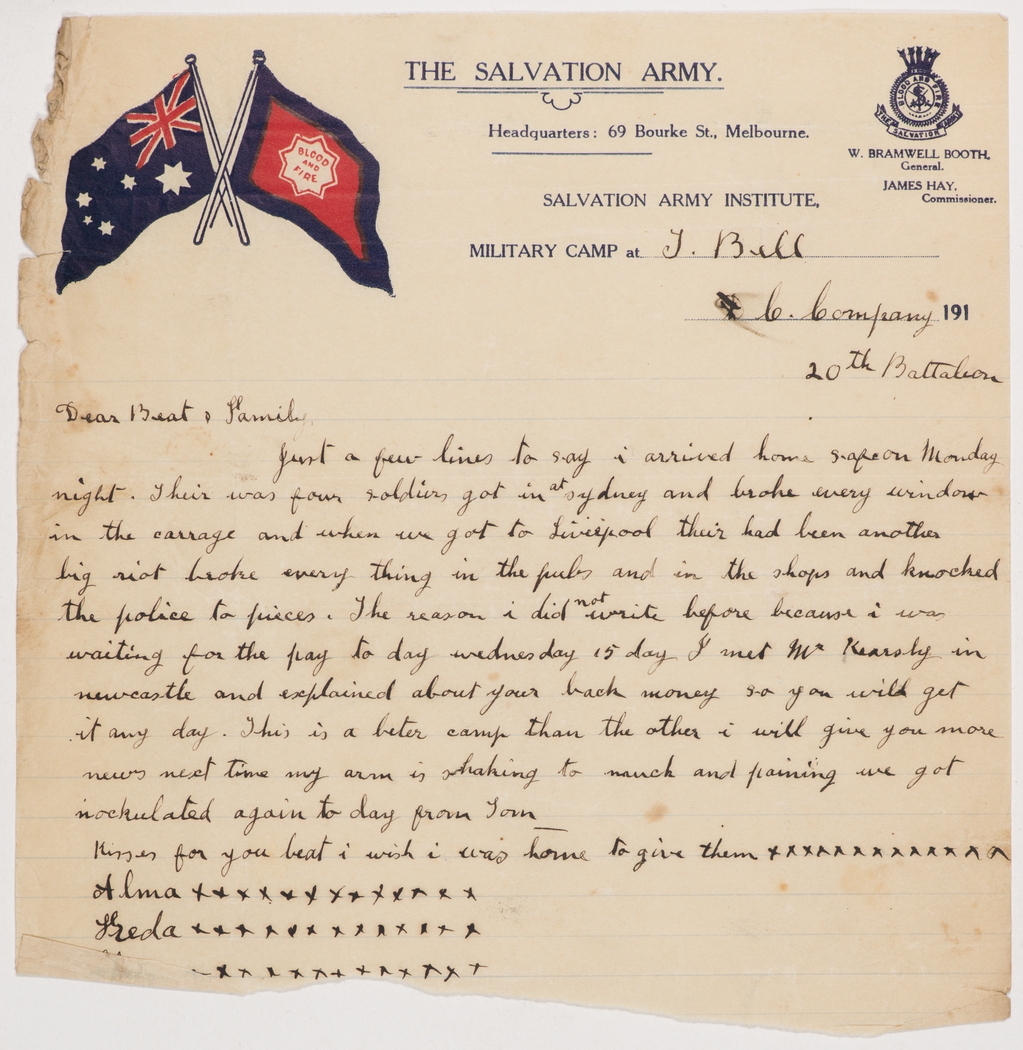 THE SALVATION ARMY.
Headquarters: 69 Bourke St., Melbourne.
BLOOD
AND
FIRE
BLOOD AND FIRE
THE SALVATION ARMY
W. BRAMWELL BOOTH,
General.
JAMES HAY,
Commissioner.
SALVATION ARMY INSTITUTE,
MILITARY CAMP at J. Bell
C. Company 191
20th Battaleon
Dear Beat & Family
Just a few lines to say i arrived home on Monday
night. Their was four soldiers got in at sydney and broke every window
in the carrage and when we got to Liverpool their had been another
big riot broke every thing in the pubs and in the shops and knocked
the police to pieces. The reason i did not write before because i was
waiting for the pay to day wednesday 15 day I met Mr Kearsly in
newcastle and explained about your back money so you will get
it any day. This is a beter camp than the other i will give you more
news next time my arm is shaking to much and paining we got
inockulated again to day from Tom
Kisses for you beat i wish i was home to give them xxxxxxxxxxxxx
Alma xxxxxxxxxxxxx
Freda xxxxxxxxxxxx
xxxxxxxxxxxx